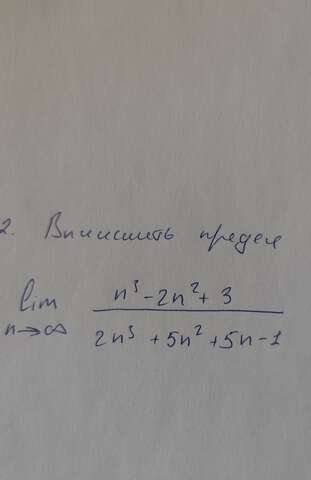 2. Вычислить предел
lim n→∞ (n³ - 2n² + 3) / (2n³ + 5n² + 5n - 1)